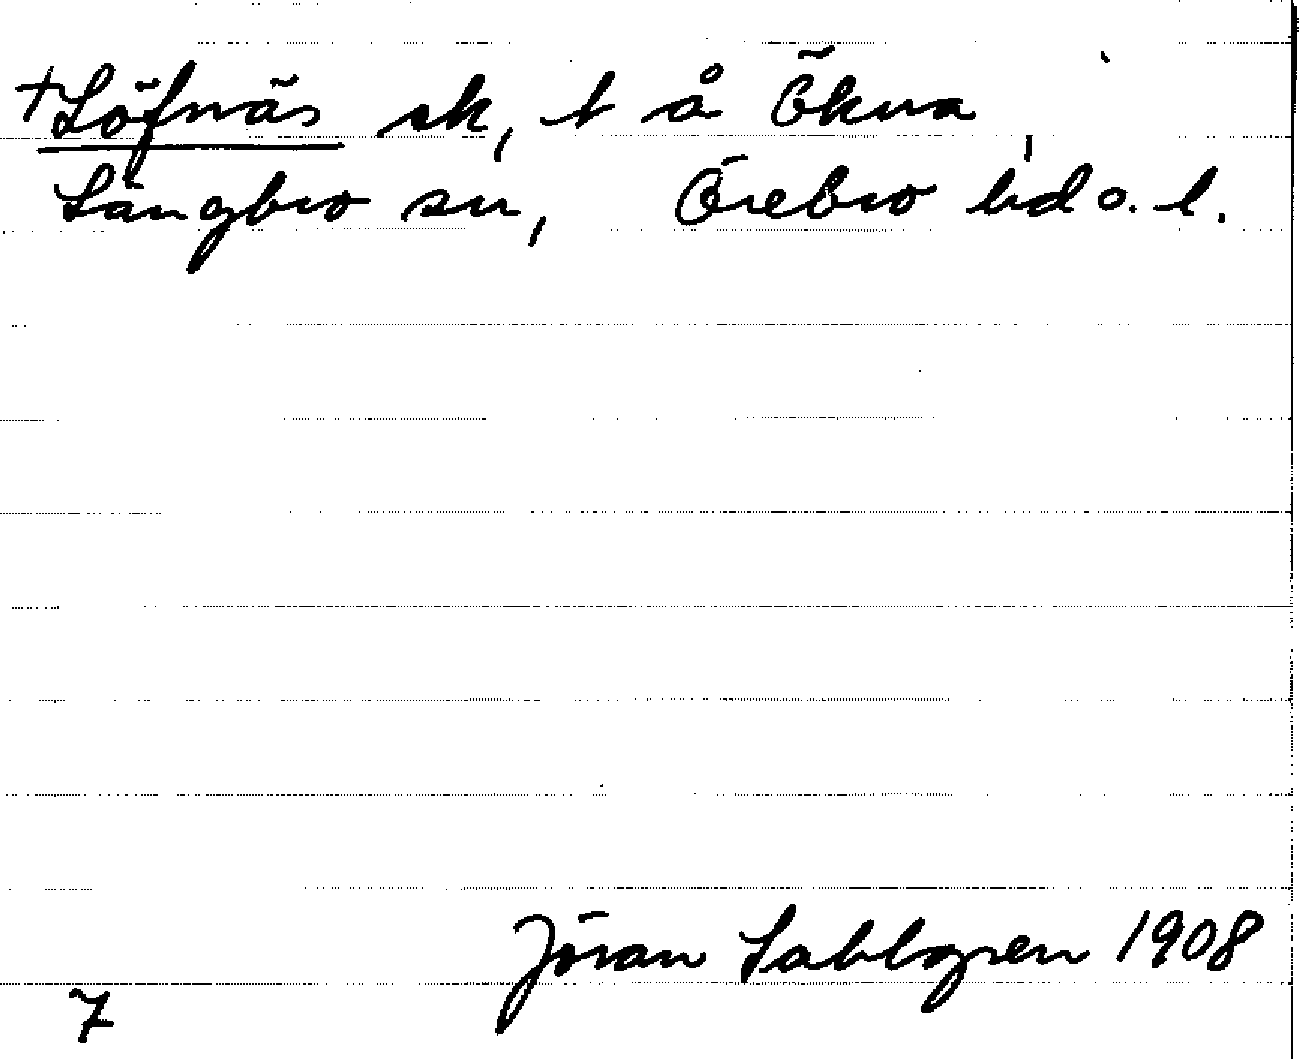 +Löfnäs sk, t å Ökna,
Längbro sn, Örebro hd o. l.
Jöran Sahlgren 1908
7